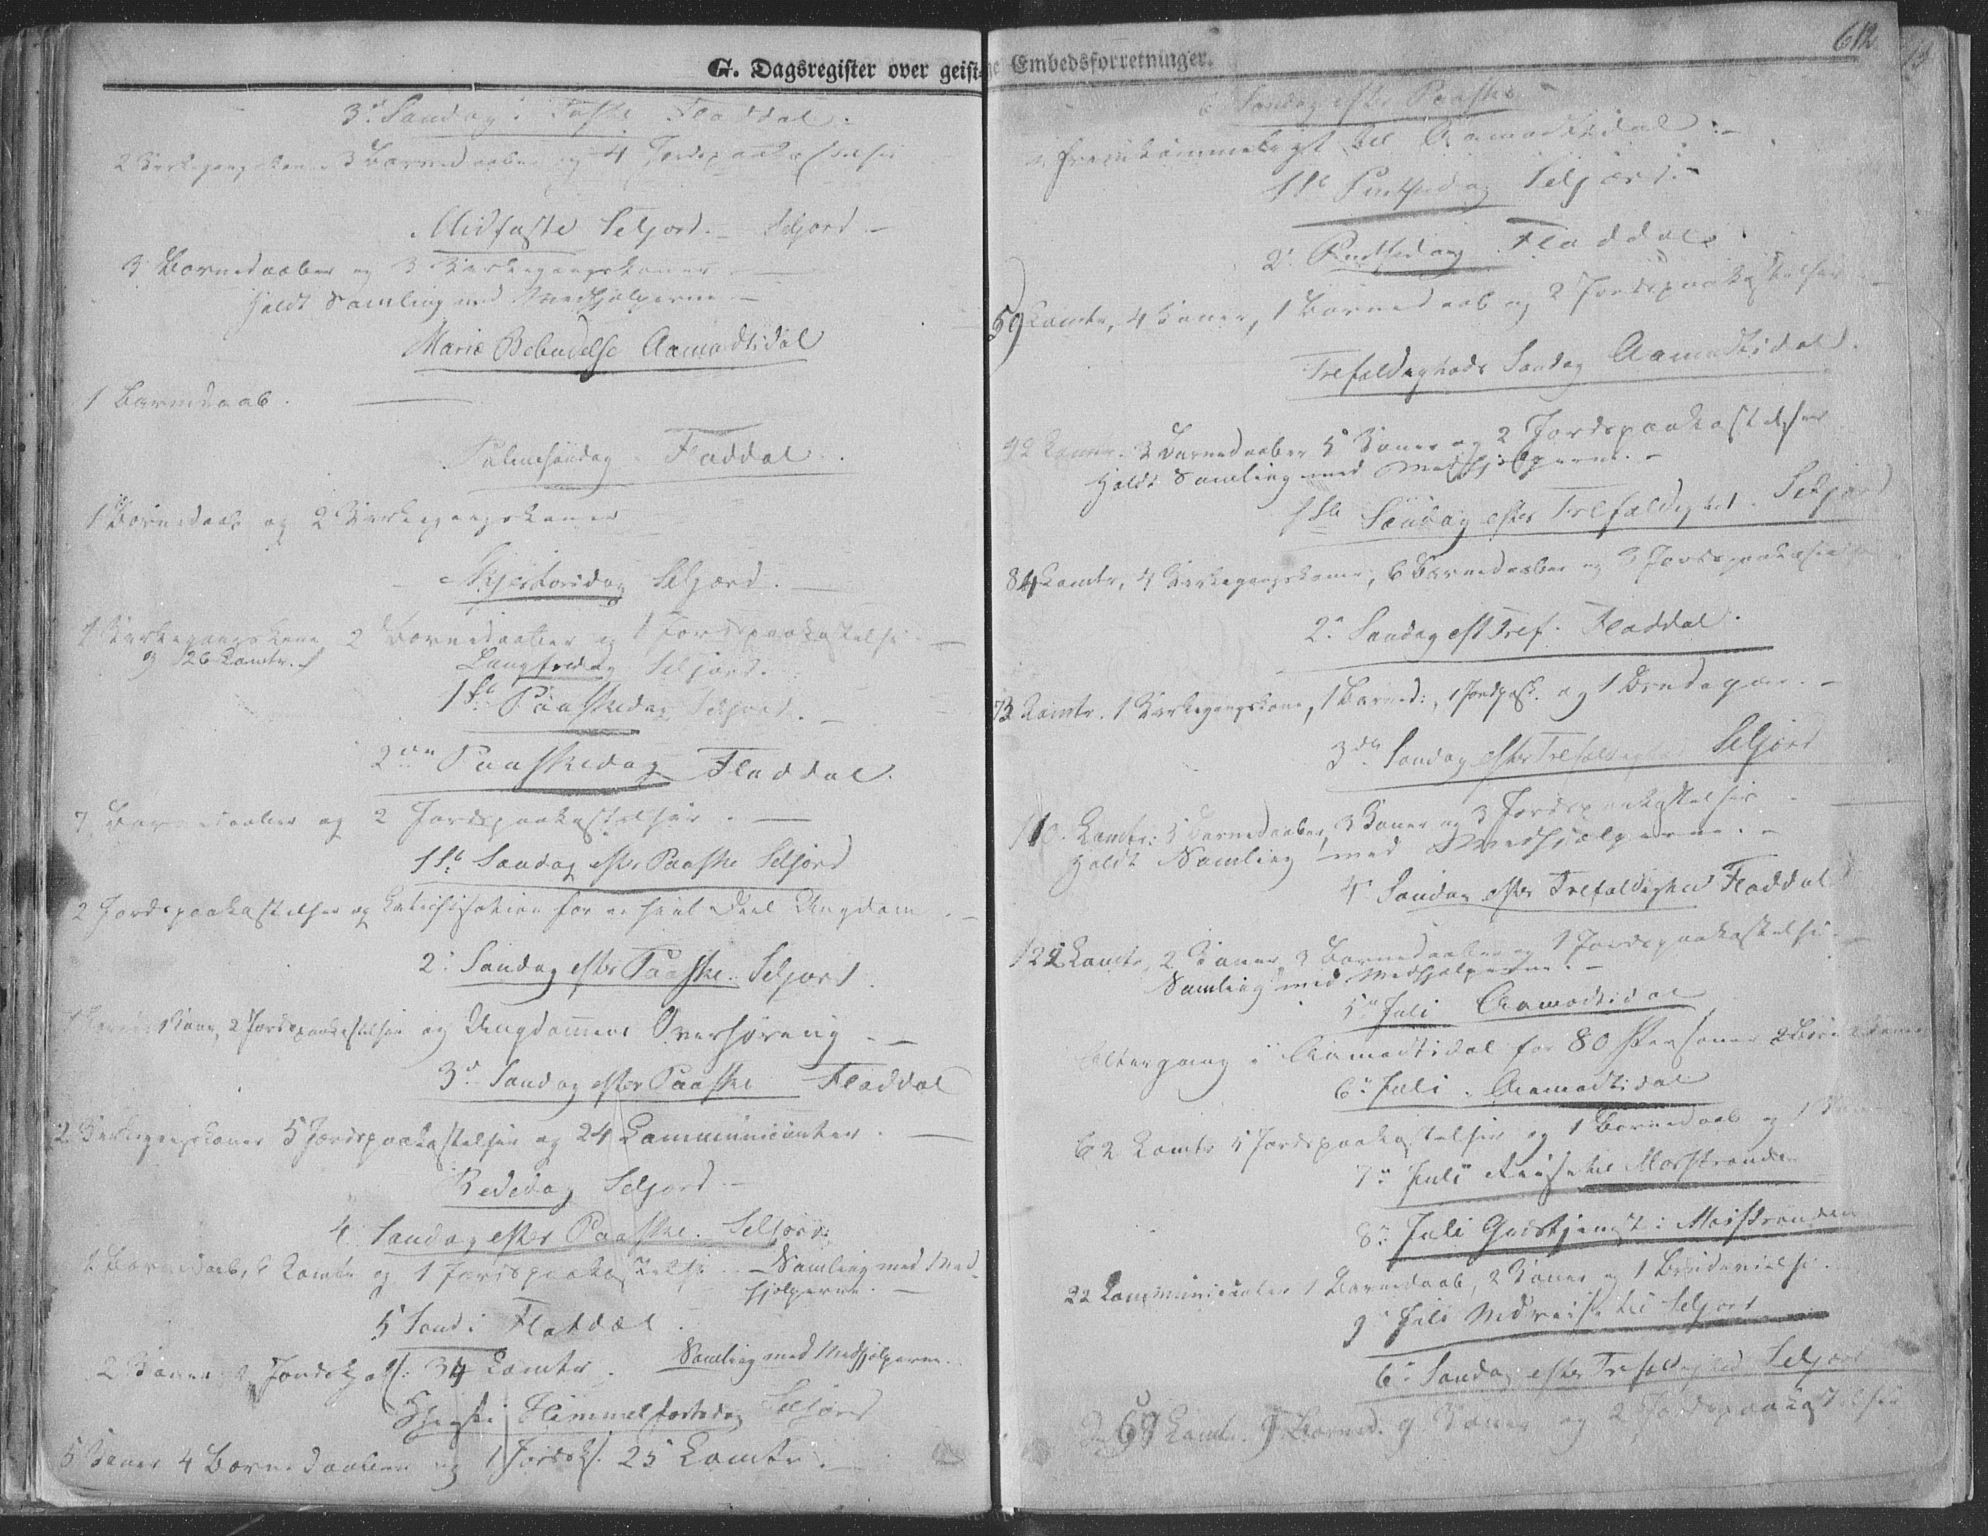 G. Dagsregister over geistlige Embedsforretninger.
3d Søndag i Faste Fladdal.
2 3 Barnedaaber og 4 Jordspaakastelser
Midfaste Seljord. Seljord.
3 Barnedaaber og 3 Kirkegangskoner
Holdt Samling med Medhjelperne
Mariæ Bebudelse Aamodtsdal
1 Barnedaab.
Palmesøndag Fladdal.
1 Barnedaab og 2 Kirkegangskoner
Skjertorsdag Seljord.
1 Kirkegangskone 2 Barnedaaber og 1 Jordspaakastelse
og 26 Comtr.
Langfredag Seljord.
1ste Paaskedag Seljord.
2den Paaskedag Fladdal.
7 Barnedaaber og 2 Jordspaakastelser.
1ste Søndag efter Paaske Seljord
2 Jordspaakastelser og Catechisation for en heel Deel Ungdom.
2. Søndag efter Paaske. Seljord.
Kone, 2 Jordspaakastelser og Ungdommens Overhøring
3d Søndag efter Paaske Fladdal
2 Kirkegangskoner 5 Jordspaakastelser og 24 Communicanter.
Bededag Seljord
4 Søndag efter Paaske. Seljord.
1 Barnedaab, Comtr og 1 Jordspaakastelse. Samling med Med-
hjelperne.
5 Sond: Flatdal.
2 Koner 2 Jordskast: 34 Comtr. Samling med Medhjelperne.
Christi Himmelfartsdag Seljord
5 Koner 4 Barnedaaber og 1 Jordsk. 25 Comtr.
612
6 Søndag efter Paaske
fremkommeligt til Aamodtsdal.
1ste Pintsedag Seljord.
2. Pintsedag Fladdal.
59 Comtr, 4 Koner, 1 Barnedaab og 2 Jordspaakastelser
Trefoldigheds Søndag Aamodtsdal.
42 Comtr. 3 Barnedaaber 5 Koner og 2 Jordspaakastelser
Holdt Samling med Medhjelperne.
1ste Søndag efter Trefoldighed. Seljord
84 Comtr, 4 Kirkegangskoner, 6 Barnedaaber og 3 Jordspaakastelser
2. Søndag eft Tref. Fladdal.
73 Comtr. 1 Kirkegangskone, 1 Barned:, 1 Jordpask. og 1 Brudepar.
3die Søndag efter Trefoldighed Seljord
110. Comtr: 5 Barnedaaber, 3 Koner og 3 Jordspaakastelser
Holdt Samling med Medhjelperne.
4 Søndag efter Trefoldighed Fladdal
122 Comtr, 2 Koner 3 Barnedaaber og 1 Jordspaakastelse.
Samling med Medhjelperne.
5te Juli Aamodtsdal
Altergang i Aamodtsdal for 80 Personer
6te Juli. Aamodtsdal
62 Comtr 5 Jordspaakastelser og 1 Barnedaab og 1
7de Juli Reise til Mosstranden
8de Juli Gudstjenest i Mosstranden
22 Communicanter 1 Barnedaab, 2 Koner og 1 Brudevielse.
9de Juli Nedreise til Seljord
6te Søndag efter Trefoldighed Seljord
69 Comtr. 9 Barned. 9 Koner og 2 Jordspaakastelser